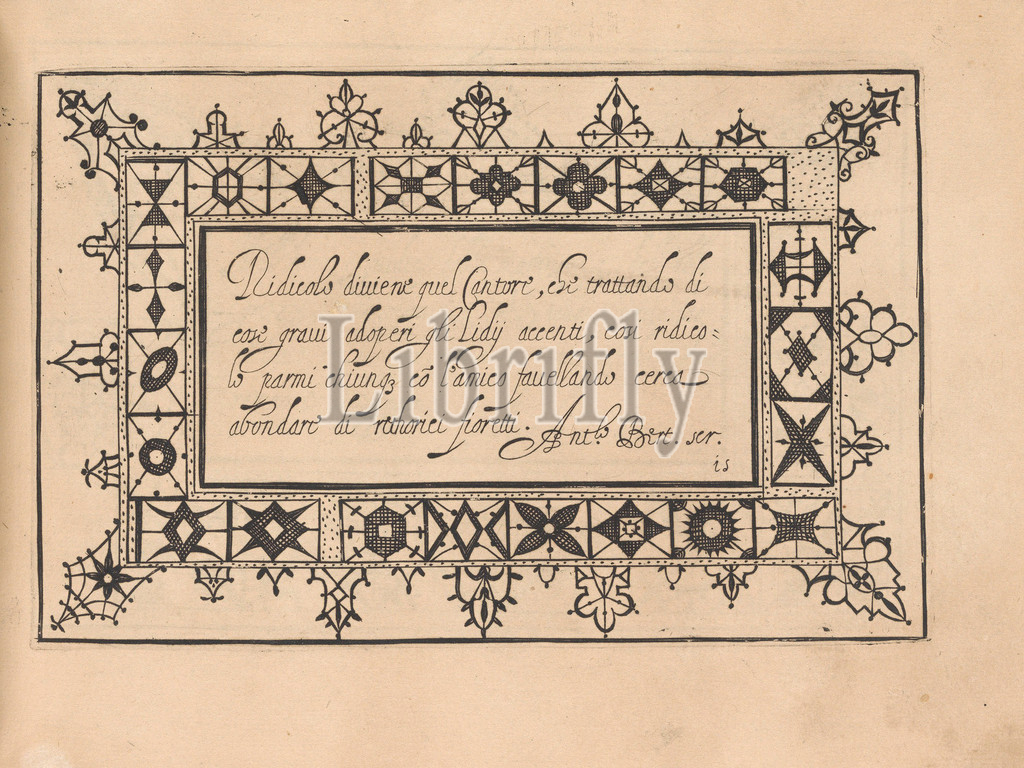 Ridicolo diviene quel Cantore, che trattando di
cose graui adoperi gli Lidij accenti, così ridico=
lo parmi chiunq3 cō l'amico fauellando cerca
abondare di rethorici fioretti. Ant.º Bert. scr.
is
Librifly